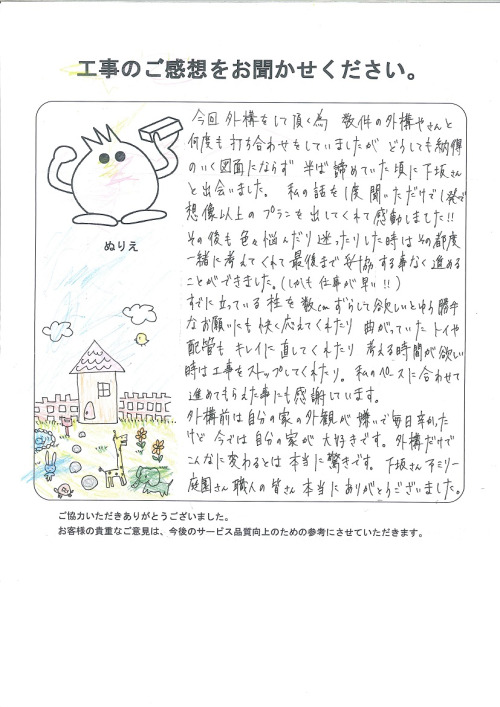 工事のご感想をお聞かせください。
今回 外構をして頂く為 数件の外構やさんと
何度も打ち合わせをしていましたが どうしても納得
のいく図面にならず 半ば諦めていた頃に下坂さん
と出会いました。 私の話を1度聞いただけで1発で
想像以上のプランを出してくれて感動しました!!
その後も色々悩んだり迷ったりした時はその都度
一緒に考えてくれて最後まで妥協する事なく進める
ことができました。(しかも仕事が早い!!)
すでに立っている柱を数cmずらして欲しいとゆう勝手
なお願いにも快く応えてくれたり 曲がっていたトイや
配管も キレイに直してくれたり 考える時間が欲しい
時は工事をストップしてくれたり。 私のペースに合わせて
進めてもらえた事にも感謝しています。
外構前は自分の家の外観が嫌いで毎日辛かった
けど 今では 自分の家が 大好きです。 外構だけで
こんなに変わるとは 本当に驚きです。 下坂さん ファミリー
庭園さん 職人の皆さん 本当にありがとうございました。
ぬりえ
ご協力いただきありがとうございました。
お客様の貴重なご意見は、今後のサービス品質向上のための参考にさせていただきます。